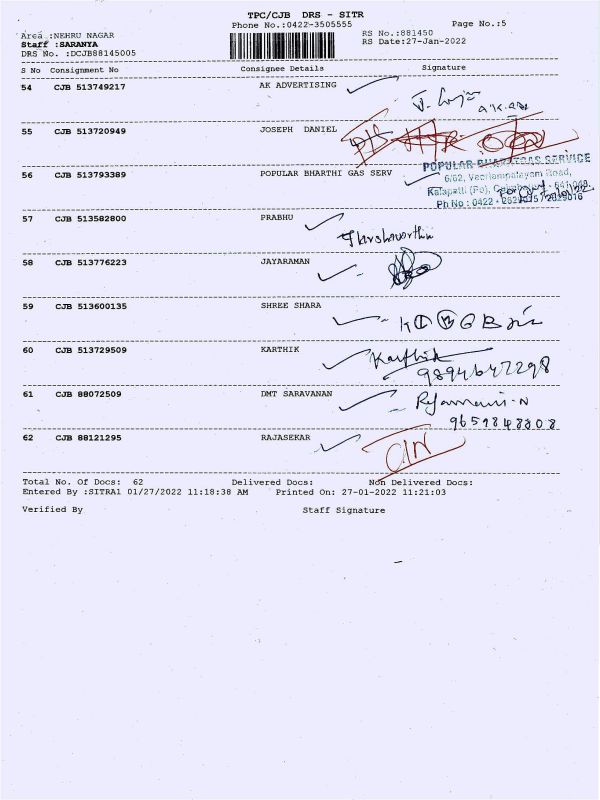 TPC/CJB DRS - SITR
Phone No.:0422-3505555
Page No.:5
Area :NEHRU NAGAR
RS No.:881450
Staff :SARANYA
RS Date:27-Jan-2022
DRS No. :DCJB88145005
S No Consignment No Consignee Details Signature
54 CJB 513749217 AK ADVERTISING
55 CJB 513720949 JOSEPH DANIEL
POPULAR BHARAT GAS SERVICE
56 CJB 513793389 POPULAR BHARTHI GAS SERV
6/62, Veeriampalayam Road,
Kalapatti (Po), Coimbatore - 641 048.
Ph No : 0422 -
57 CJB 513582800 PRABHU
58 CJB 513776223 JAYARAMAN
59 CJB 513600135 SHREE SHARA
60 CJB 513729509 KARTHIK Karthik
9894647298
61 CJB 88072509 DMT SARAVANAN
9659848808
62 CJB 88121295 RAJASEKAR
Total No. Of Docs: 62 Delivered Docs: Non Delivered Docs:
Entered By :SITRA1 01/27/2022 11:18:38 AM Printed On: 27-01-2022 11:21:03
Verified By Staff Signature